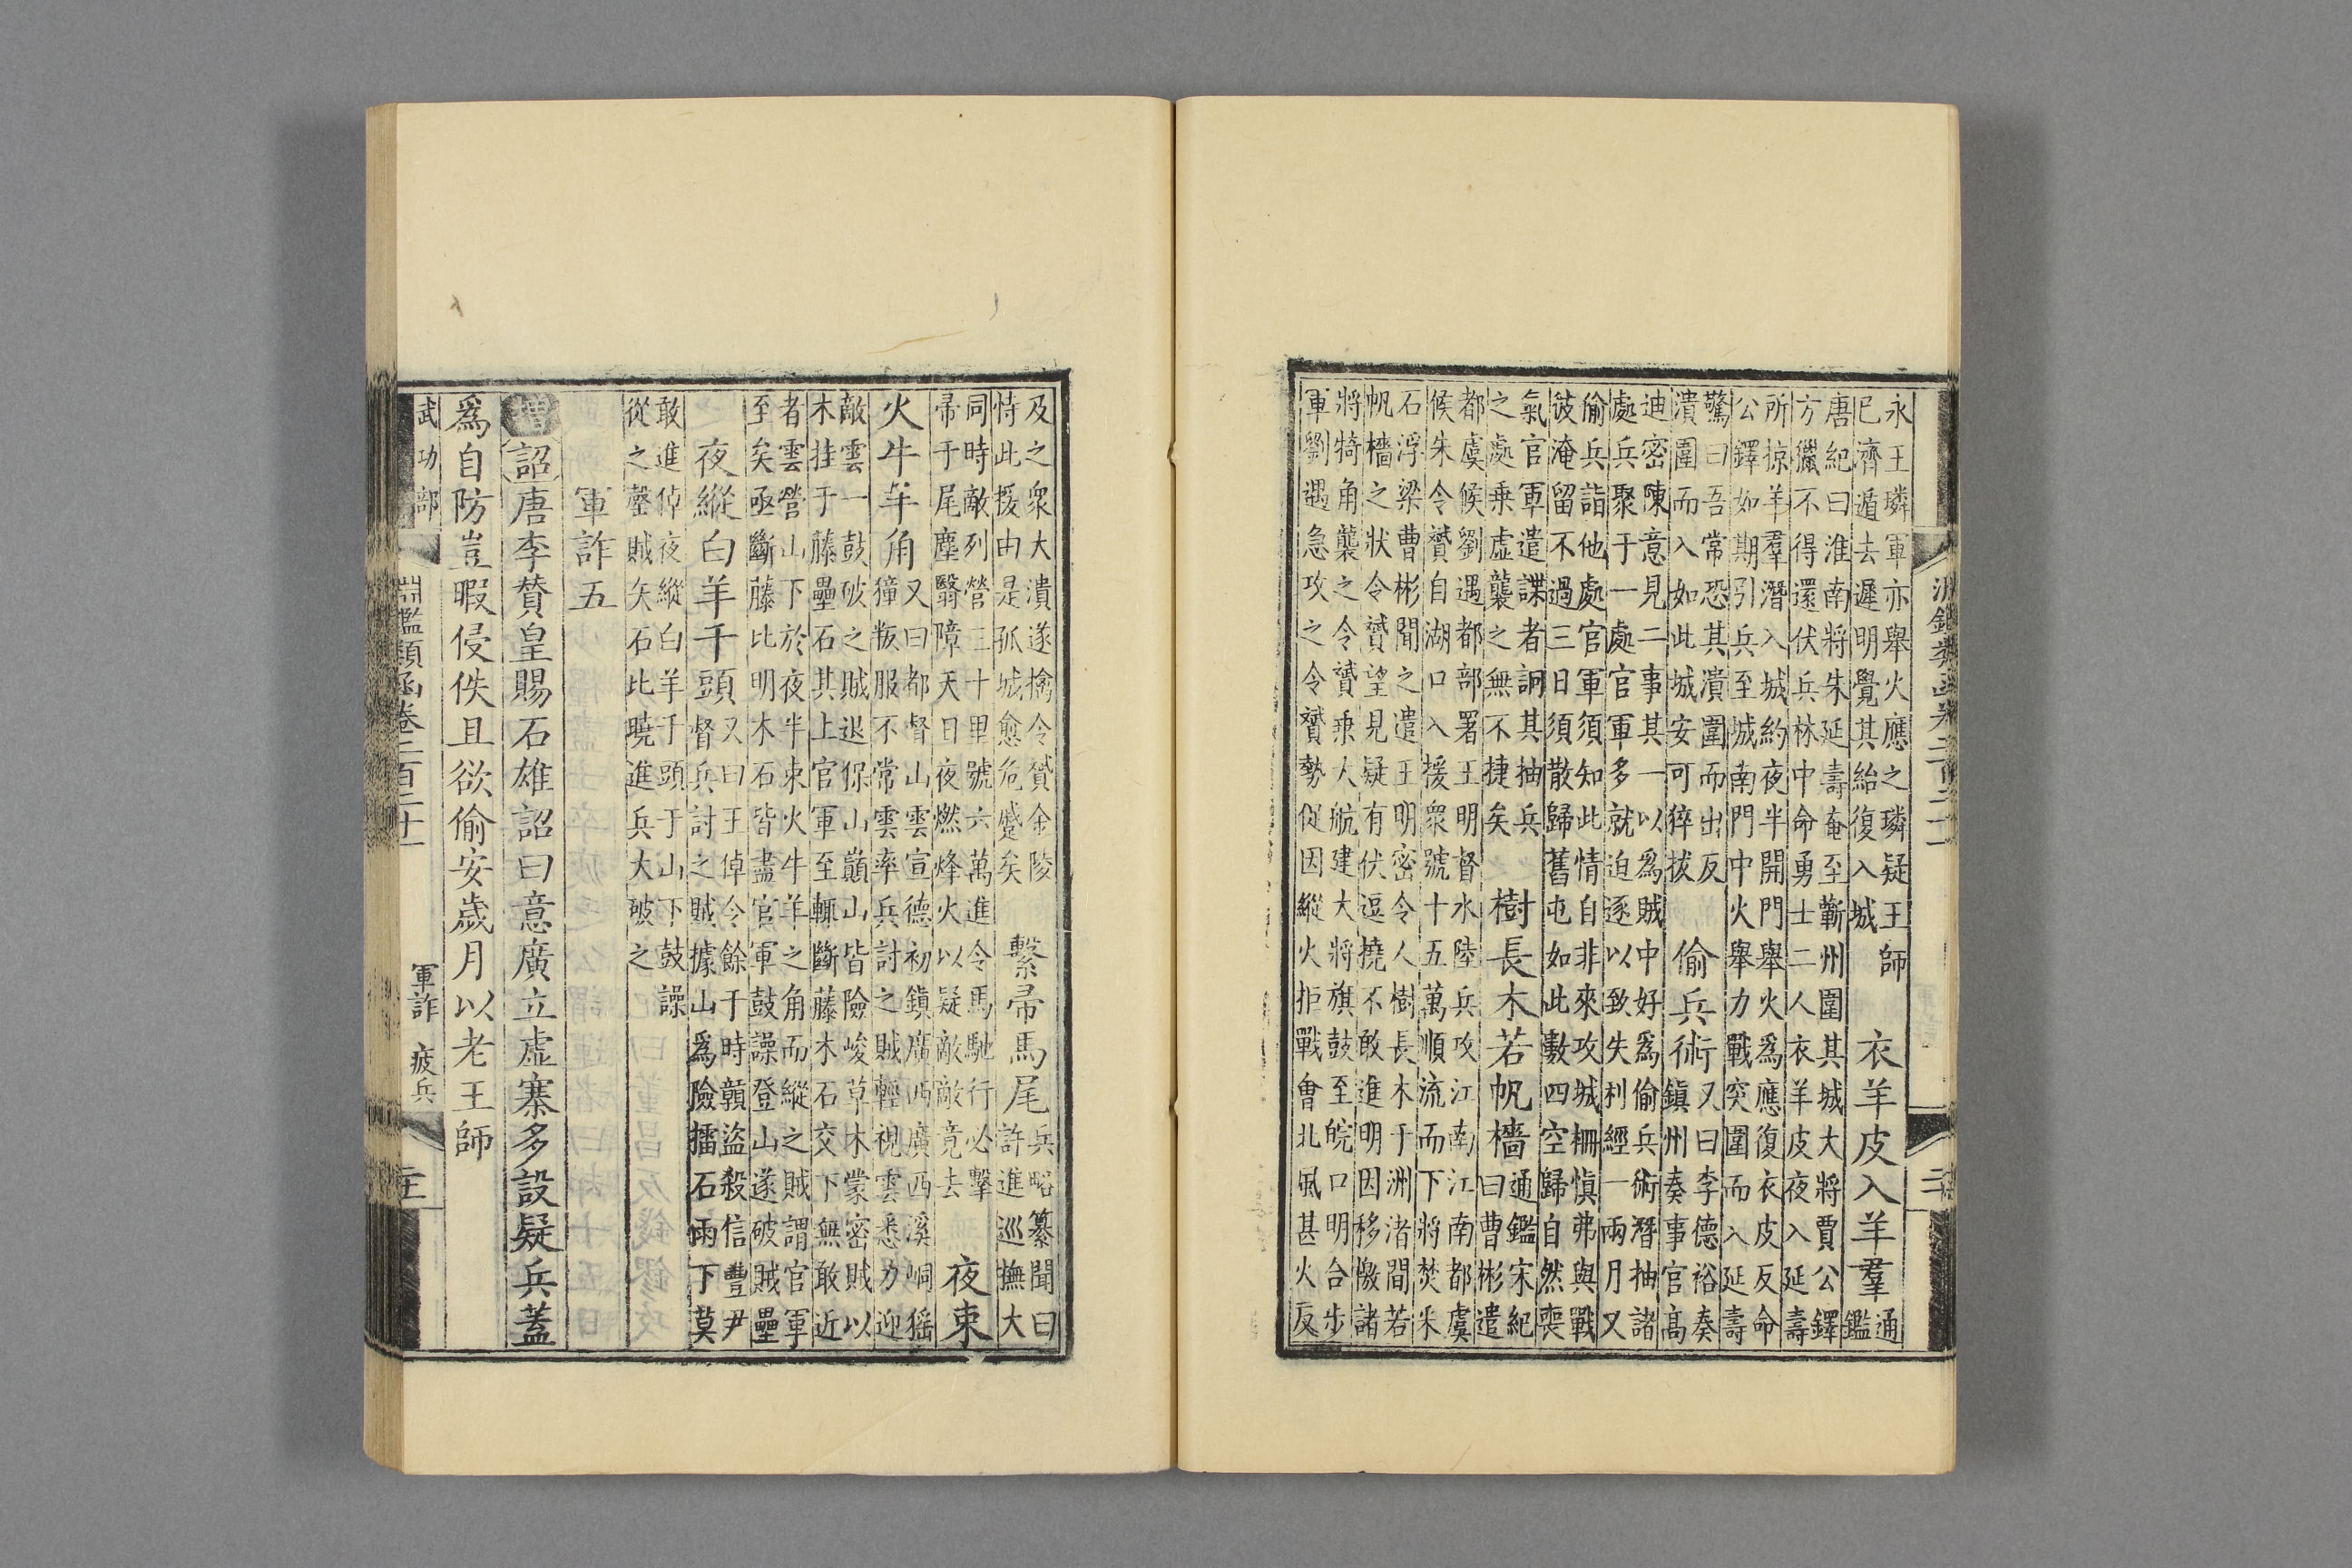 永王璘軍亦舉火應之璘疑王師
已濟遁去遲明覺其紿復入城
衣羊皮入羊羣
通
鑑
唐紀曰淮南將朱延壽奄至蘄州圍其城大將賈公鐸
方獵不得還伏兵林中命勇士二人衣羊皮夜入延壽
所掠羊羣潛入城約夜半開門舉火爲應復衣皮反命
公鐸如期引兵至城南門中火舉力戰突圍而入延壽
驚曰吾常恐其潰圍而出反
潰圍而入如此城安可猝拔
偷兵術
又曰李德裕奏
鎮州奏事官高
迪密陳意見二事其一以爲賊中好爲偷兵術潛抽諸
處兵聚于一處官軍多就迫逐以致失利經一兩月又
偷兵詣他處官軍須知此情自非來攻城柵慎弗與戰
彼淹留不過三日須散歸舊屯如此數四空歸自然喪
氣官軍遣諜者詗其抽兵
之處乘虛襲之無不捷矣
樹長木若帆檣
通鑑宋紀
曰曹彬遣
都虞候劉遇都部署王明督水陸兵攻江南江南都虞
候朱令贇自湖口入援衆號十五萬順流而下將焚釆
石浮梁曹彬聞之遣王明密令人樹長木于洲渚間若
帆檣之狀令贇望見疑有伏逗撓不敢進明因移檄諸
將犄角襲之令贇乘大航建大將旗鼓至皖口明合步
軍劉遇急攻之令贇勢促因縱火拒戰會北風甚火反
及之衆大潰遂擒令贇金陵
恃此援由是孤城愈危蹙矣
繫帚馬尾
兵略纂聞曰
許進巡撫大
同時敵列營三十里號六萬進令馬馳行必擊
帚于尾塵翳障天日夜燃烽火以疑敵敵竟去
夜束
火牛羊角
又曰都督山雲宣德初鎮廣西廣西溪峒猺
獞叛服不常雲率兵討之賊輕視雲悉力迎
敵雲一鼓破之賊退保山巔山皆險峻草木蒙密賊以
木挂于藤壘石其上官軍至輒斷藤木石交下無敢近
者雲營山下於夜半束火牛羊之角而縱之賊謂官軍
至矣亟斷藤比明木石皆盡官軍鼓譟登山遂破賊壘
夜縱白羊千頭
又曰王倬令餘干時贛盜殺信豐尹
督兵討之賊據山爲險擂石雨下莫
敢進倬夜縱白羊千頭于山下鼓譟
從之罄賊矢石比曉進兵大破之
軍詐五
增
詔唐李贊皇賜石雄詔曰意廣立虛寨多設疑兵蓋
爲自防豈暇侵佚且欲偷安歲月以老王師
武功部
淵鑑類函卷二百二十一
軍詐 疲兵